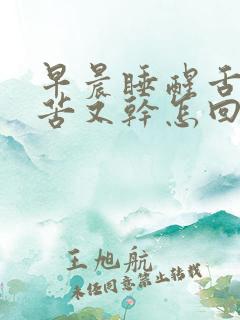 早晨睡醒舌
苦又幹怎回
王旭航
未经同意禁止转载